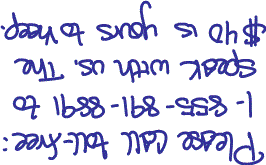 Please call toll-free:
1-855-891-8891 to
speak with us. The
$40 is yours to keep.